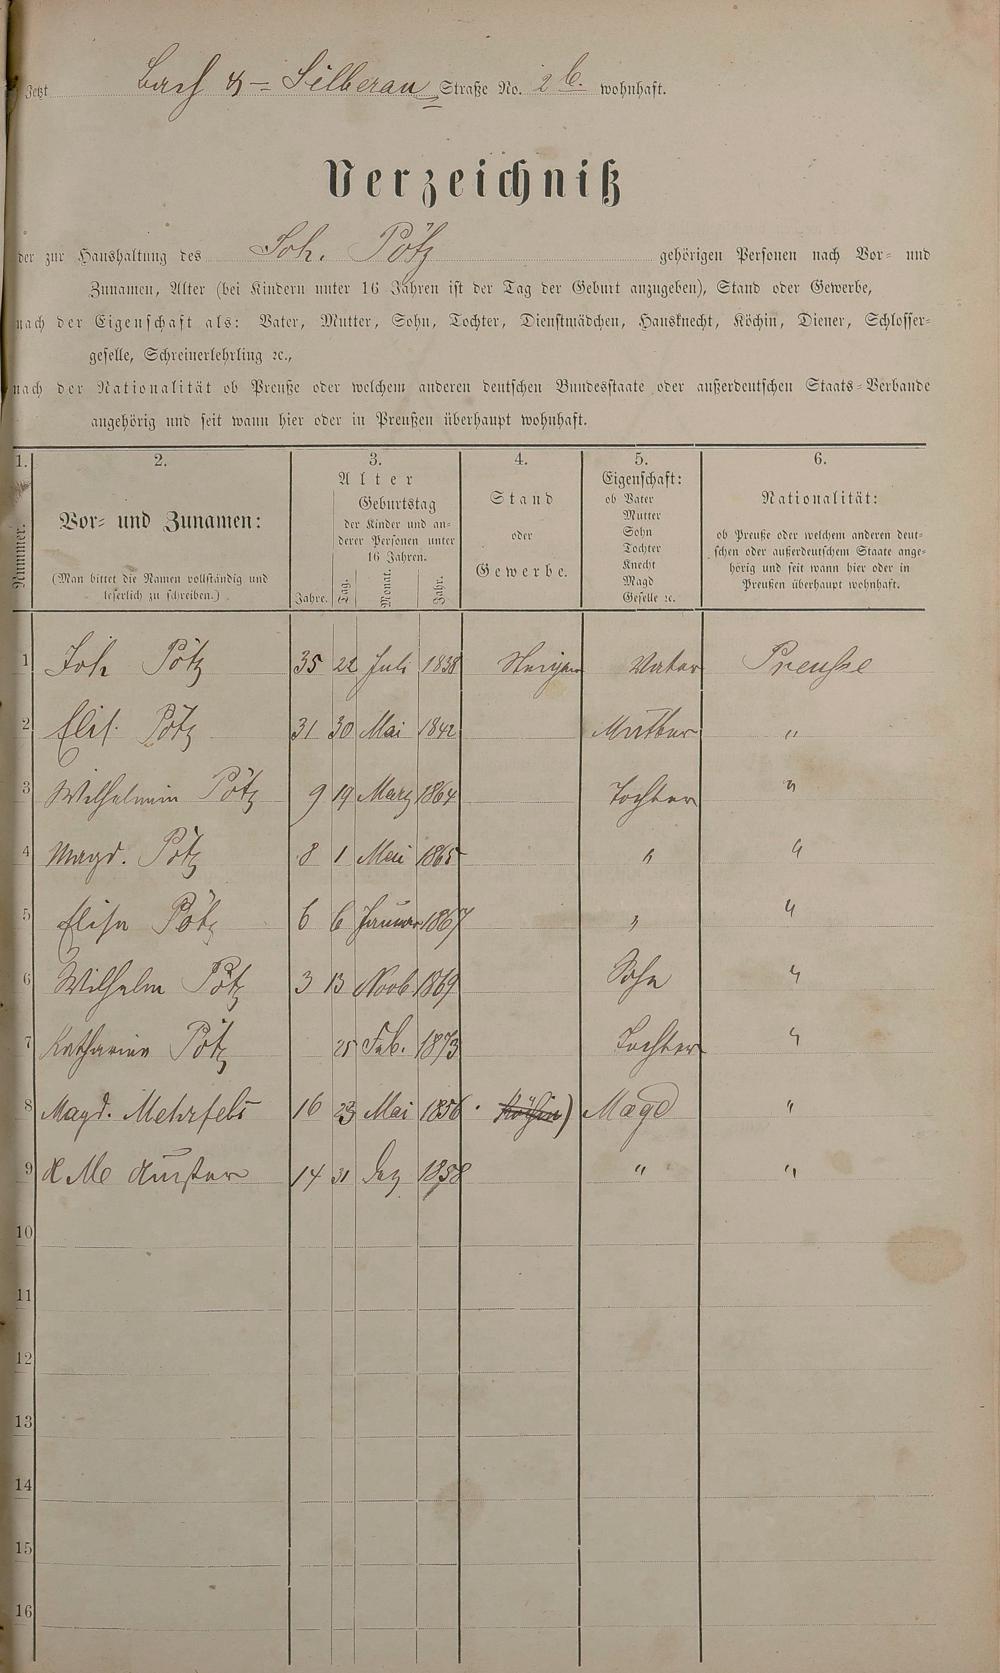 Jetzt Bach & Silberau Straße No. 2 b. wohnhaft.
Verzeichniß
der zur Haushaltung des Joh. Pötz gehörigen Personen nach Vor- und
Zunamen, Alter (bei Kindern unter 16 Jahren ist der Tag der Geburt anzugeben), Stand oder Gewerbe,
nach der Eigenschaft als: Vater, Mutter, Sohn, Tochter, Dienstmädchen, Hausknecht, Köchin, Diener, Schlosser-
geselle, Schreinerlehrling ꝛc.,
nach der Nationalität ob Preuße oder welchem anderen deutschen Bundesstaate oder außerdeutschen Staats-Verbande
angehörig und seit wann hier oder in Preußen überhaupt wohnhaft.
1. 2. 3. 4. 5. 6.
Nummer.
Vor- und Zunamen:
(Man bittet die Namen vollständig und
leserlich zu schreiben.)
Alter
Geburtstag
der Kinder und an-
derer Personen unter
16 Jahren.
Jahre. Tag. Monat. Jahr.
Stand
oder
Gewerbe.
Eigenschaft:
ob Vater
Mutter
Sohn
Tochter
Knecht
Magd
Geselle ꝛc.
Nationalität:
ob Preuße oder welchem anderen deut-
schen oder außerdeutschem Staate ange-
hörig und seit wann hier oder in
Preußen überhaupt wohnhaft.
1 Joh Pötz 35 22 Juli 1838 Vater Preuße
2 Elis. Pötz 31 30 Mai 1842 Mutter "
3 Wilhelmin Pötz 9 19 März 1864 Tochter "
4 Magd. Pötz 8 1 Mai 1865 " "
5 Elisa Pötz 6 6 Januar 1867 " "
6 Wilhelm Pötz 3 13 Novb. 1869 Sohn "
7 Katharina Pötz 25 Feb. 1873 Tochter "
8 Magd. Mehrfels 16 23 Mai 1856 Köchin) Magd "
9 14 31 Dez 1858 " "
10
11
12
13
14
15
16